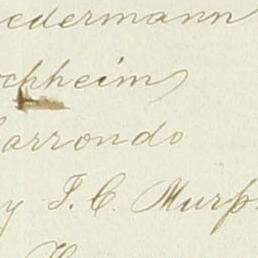 edermann
ckheim
arrondo
y F. C. Murph